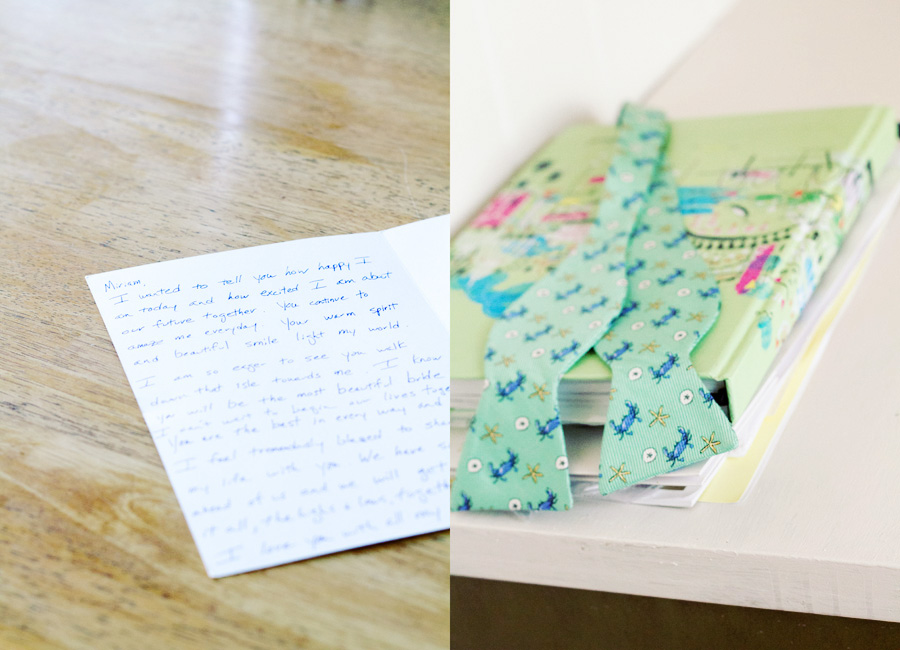 Miriam,
I wanted to tell you how happy I
am today and how excited I am about
our future together. You continue to
amaze me everyday. Your warm spirit
and beautiful smile light my world.
I am so eager to see you walk
down that isle towards me. I know
you will be the most beautiful bride
I can't wait to begin our lives toge
You are the best in every way and
I feel tremendously blessed to sha
my life with you. We have s
ahead of us and we will get
it all, the highs & lows, togeth
I love you with all my